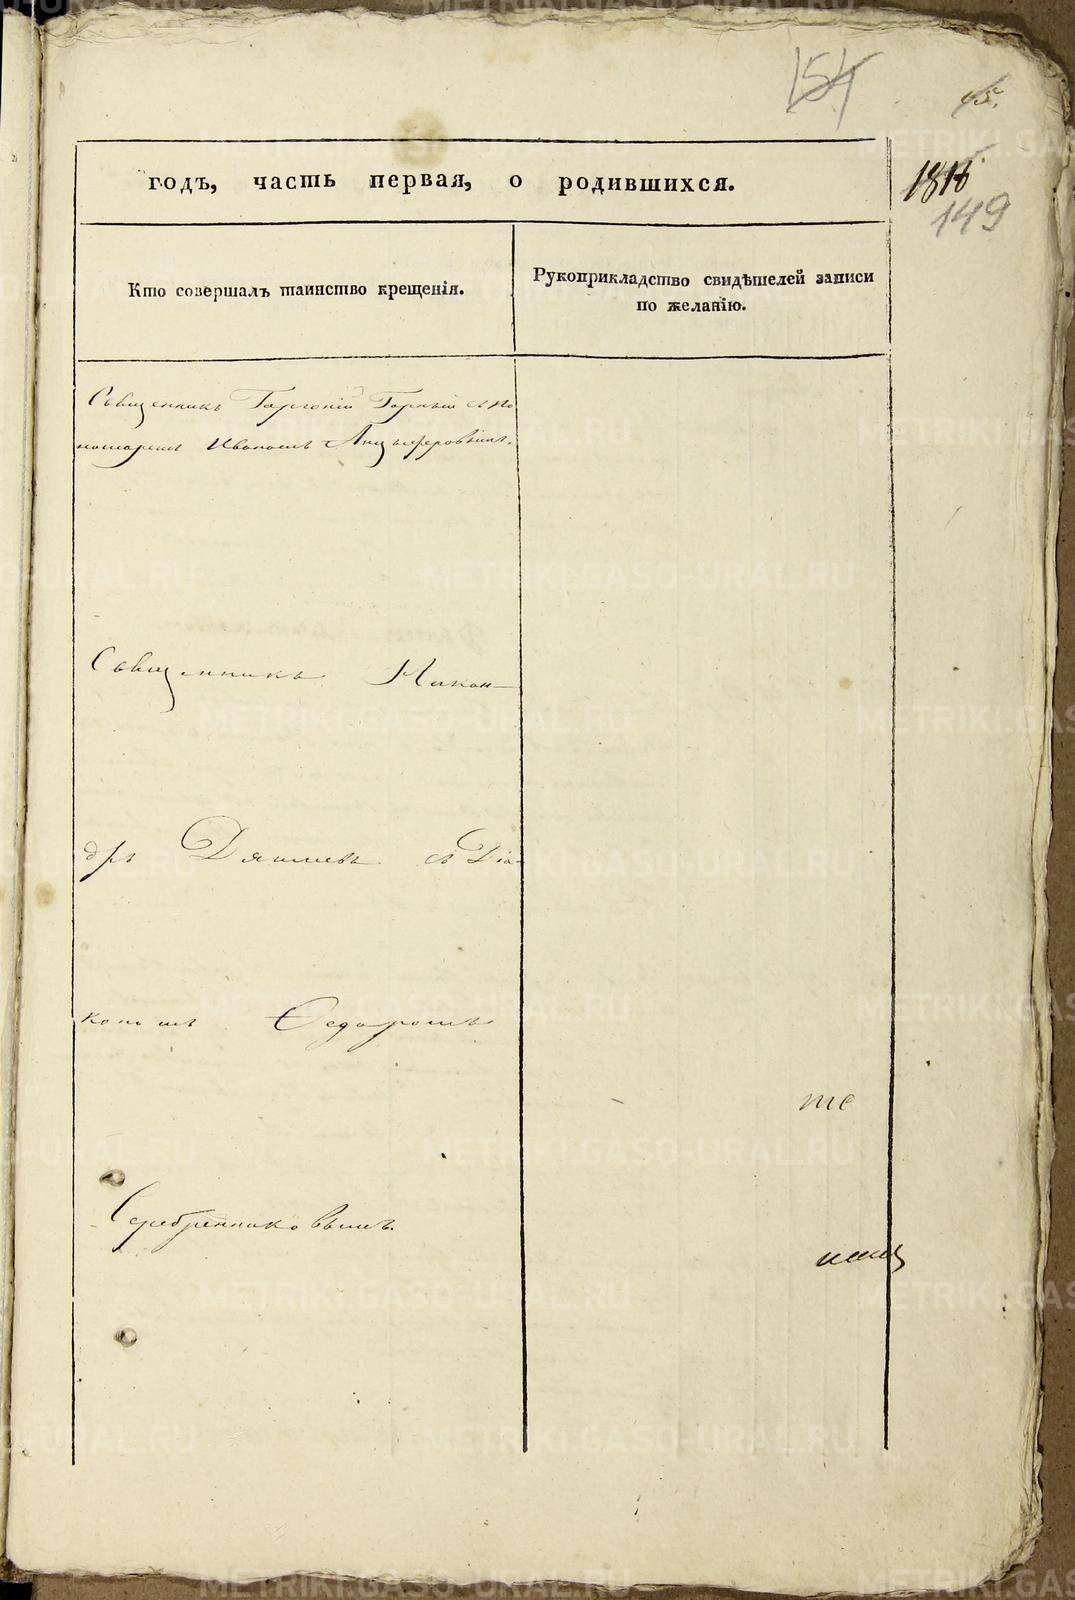 154
65.
годъ, часть первая, о родившихся.
1816
149
Кто совершалъ таинство крещенія.
Рукоприкладство свидѣтелей записи
по желанію.
Священникъ Горный съ по
номаремъ Иваномъ Анцыферовымъ.
Священникъ Никан-
дръ Дягилевъ съ Діа-
кономъ Ѳедоромъ
те
Серебренниковымъ
METRIKI.GASO-URAL.RU